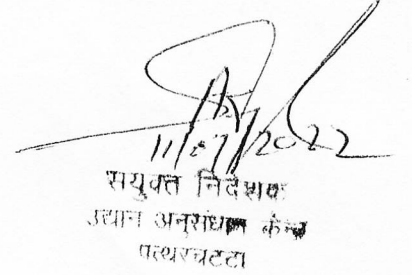 11/07/2022
सयुक्त निदेशक
उद्यान अनुसंधान केन्द्र
पत्थरचटटा